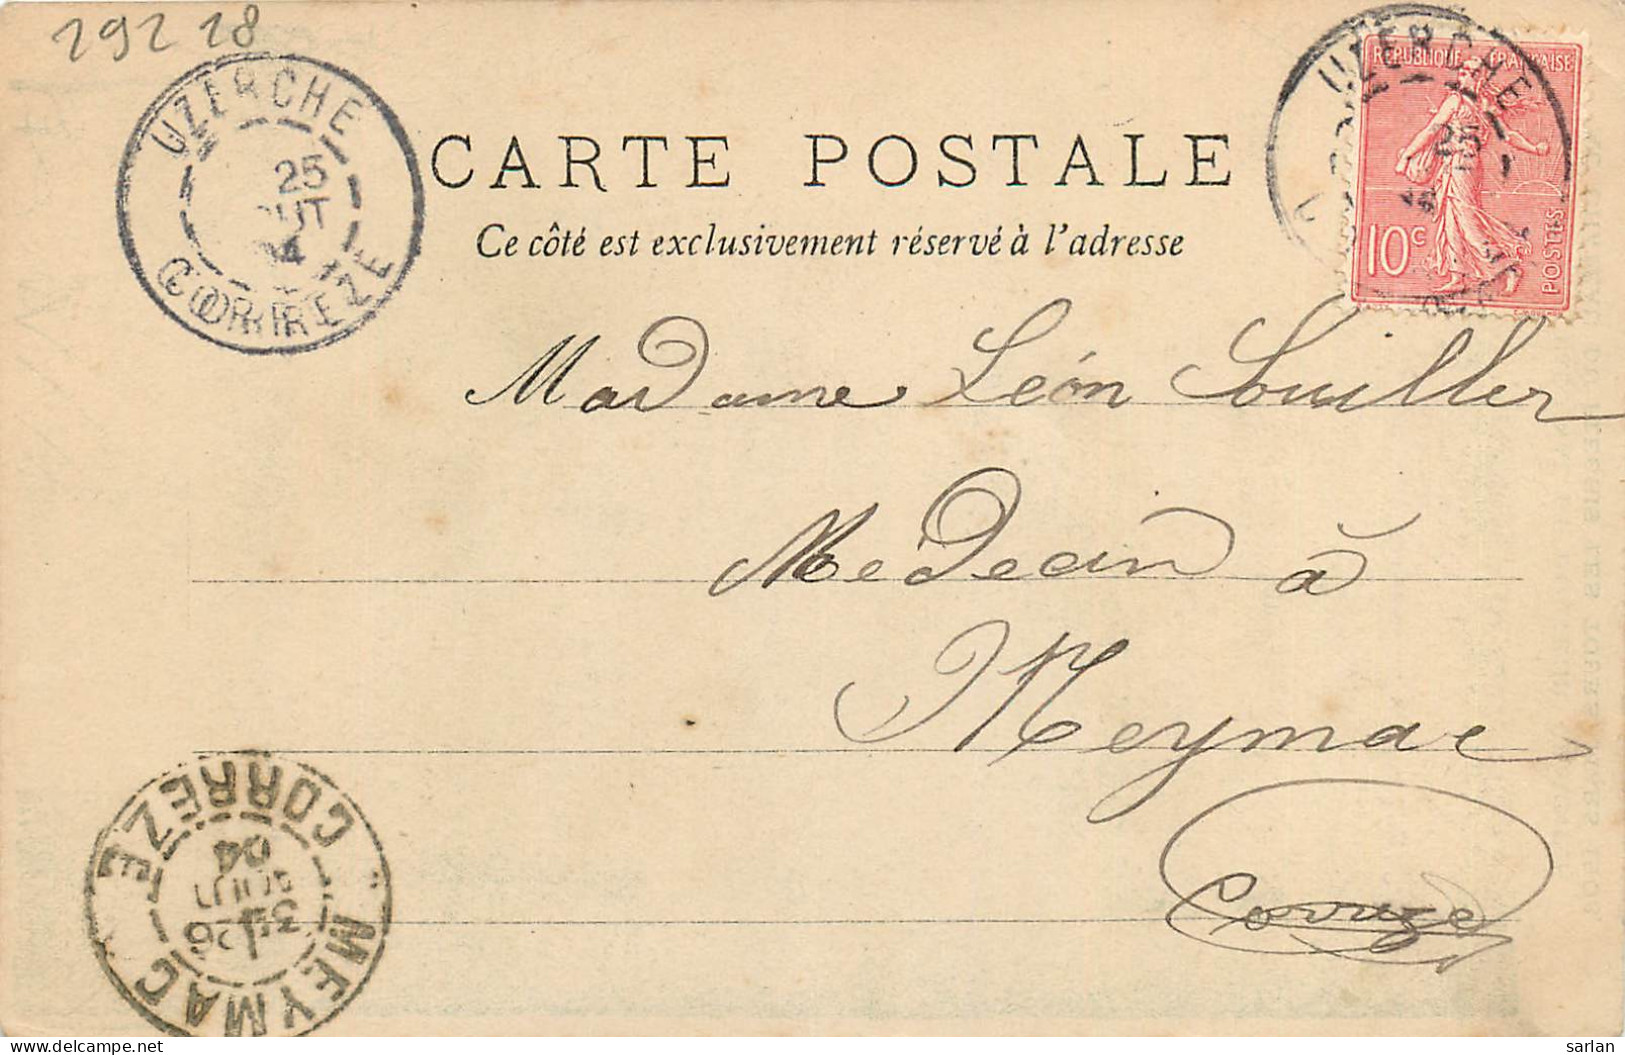 29218
UZERCHE
25
AOUT
04
CORREZE
UZERCHE
25
REPUBLIQUE FRANÇAISE
10c
POSTES
CARTE POSTALE
Ce côté est exclusivement réservé à l'adresse
Madame Léon Souiller
Medecin à
Meymac
Correze
MEYMAC
CORREZE
26
AOUT
04
delcampe.net
sarlan